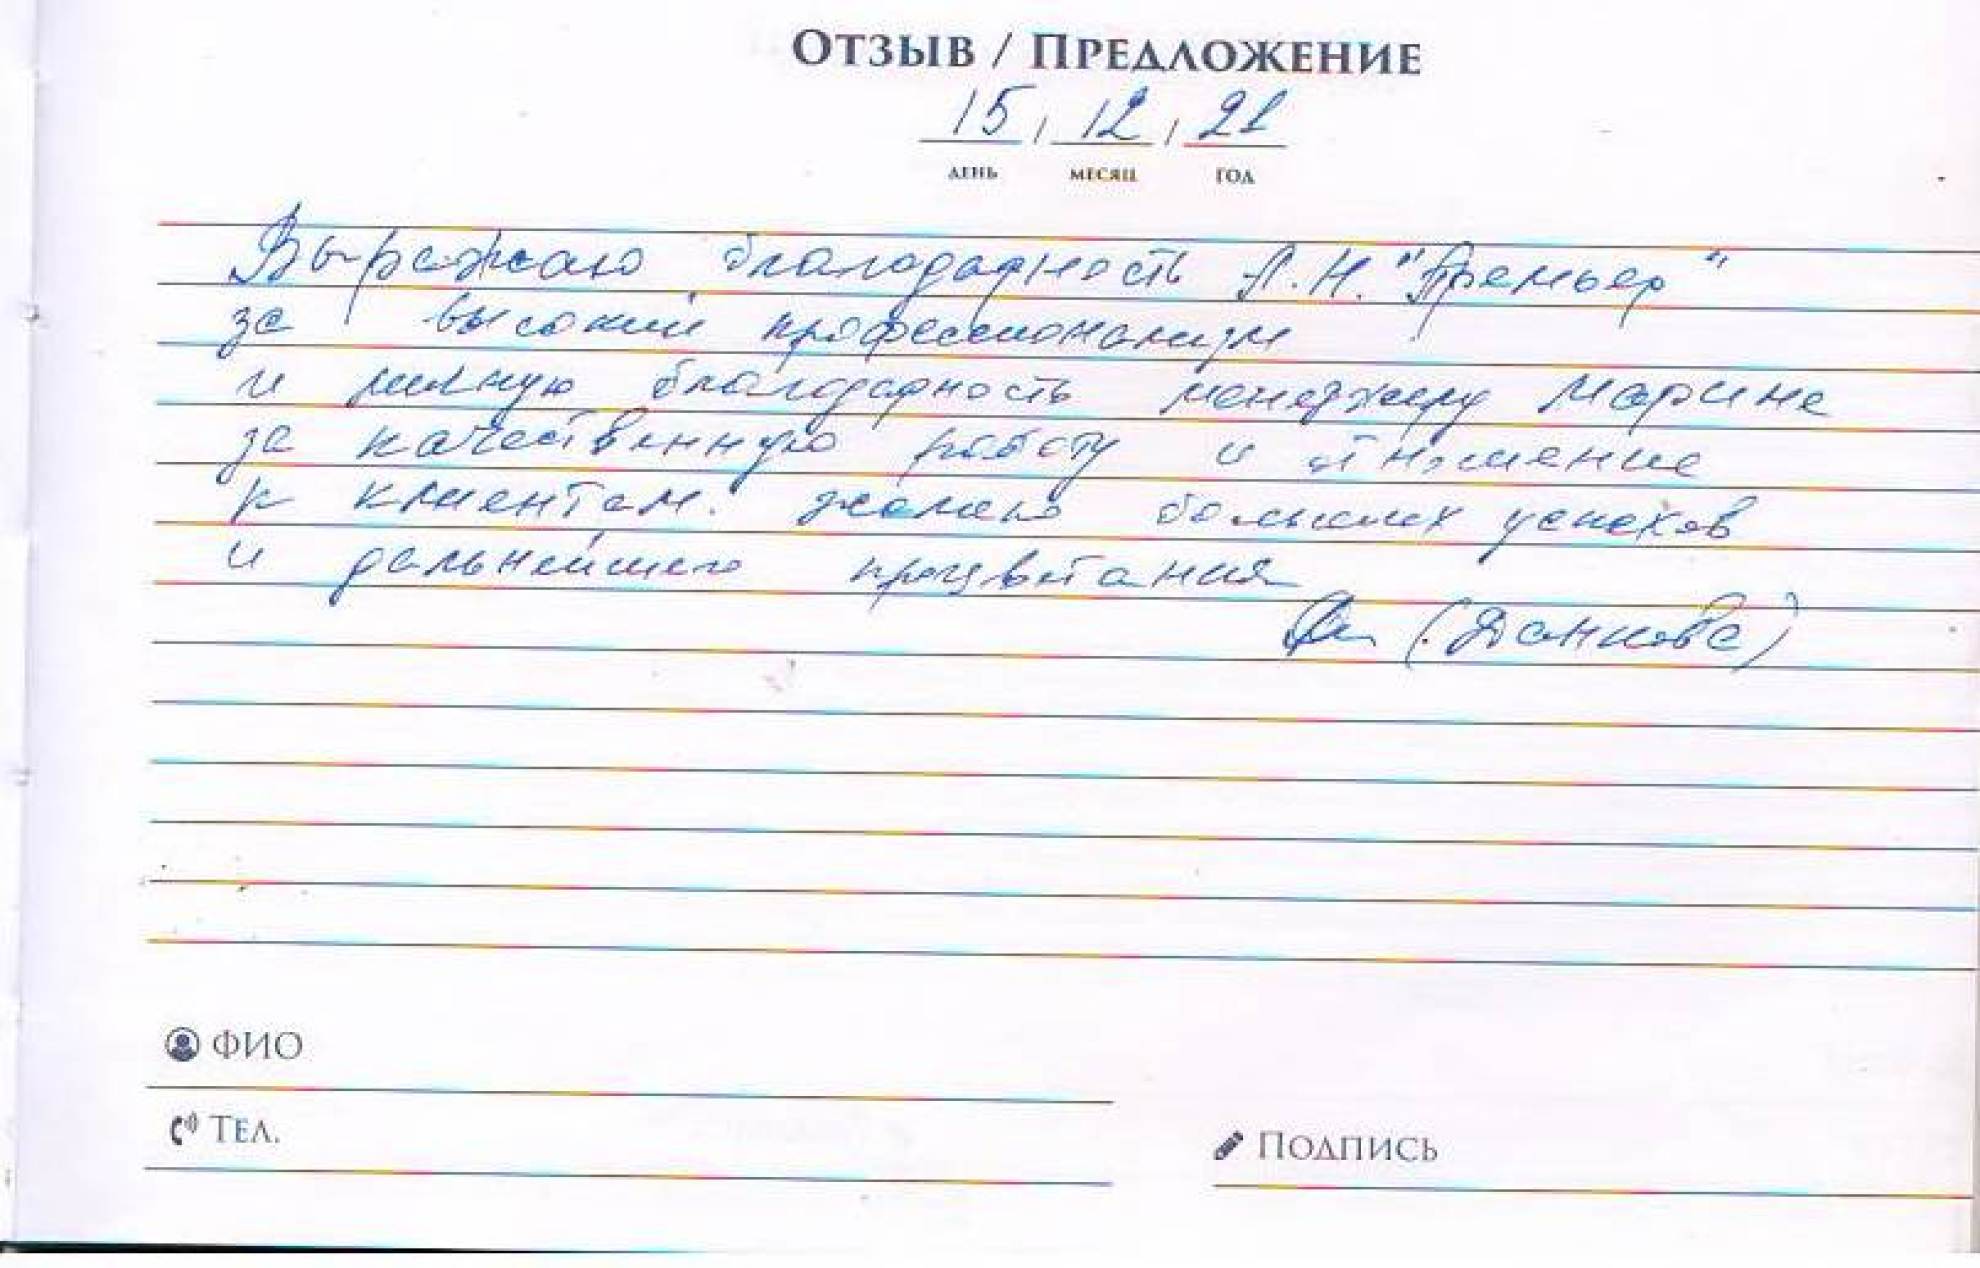 ОТЗЫВ / ПРЕДЛОЖЕНИЕ
15 / 12 / 21
ДЕНЬ МЕСЯЦ ГОД
Выражаю благодарность А.Н. "Премьер"
за высокий профессионализм
и личную благодарность менеджеру Марине
за качественную работу и отношение
к клиентам. Желаю больших успехов
и дальнейшего процветания
(Данкова)
ФИО
ТЕЛ.
ПОДПИСЬ